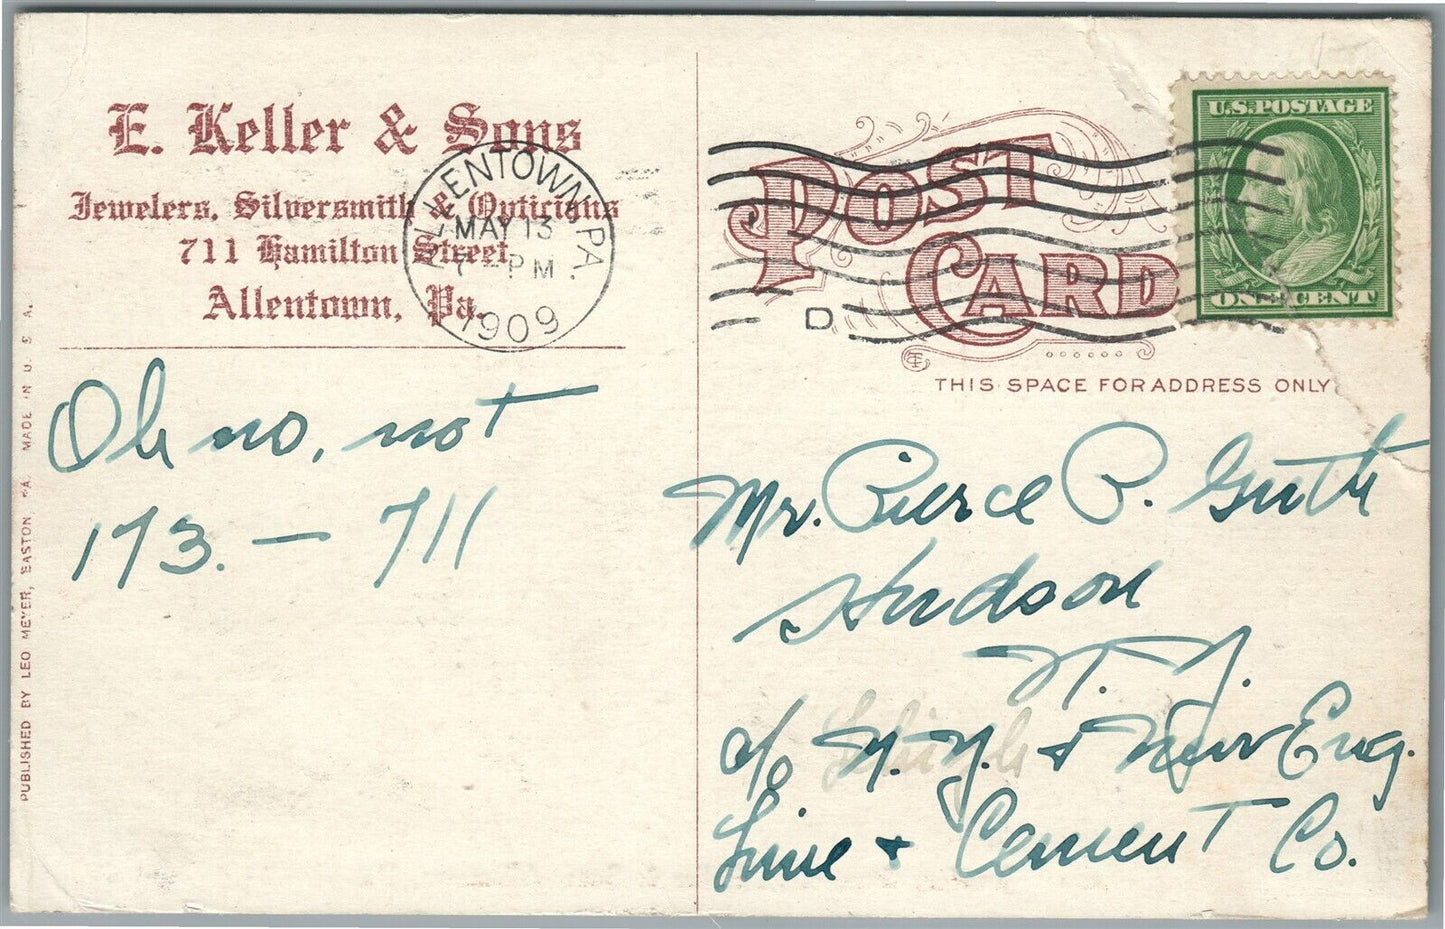 E. Keller & Sons
Jewelers, Silversmith & Opticians
711 Hamilton Street
Allentown, Pa.
ALLENTOWN, PA.
MAY 13
7 - PM
1909
D
POST CARD
U.S. POSTAGE
ONE CENT
THIS SPACE FOR ADDRESS ONLY
Oh no, not
173. — 711
Mr. Pierce P. Guth
Hudson
N. Y.
c/o N. Y. & New Eng.
Lime & Cement Co.
PUBLISHED BY LEO MEYER, EASTON PA. MADE IN U. S. A.